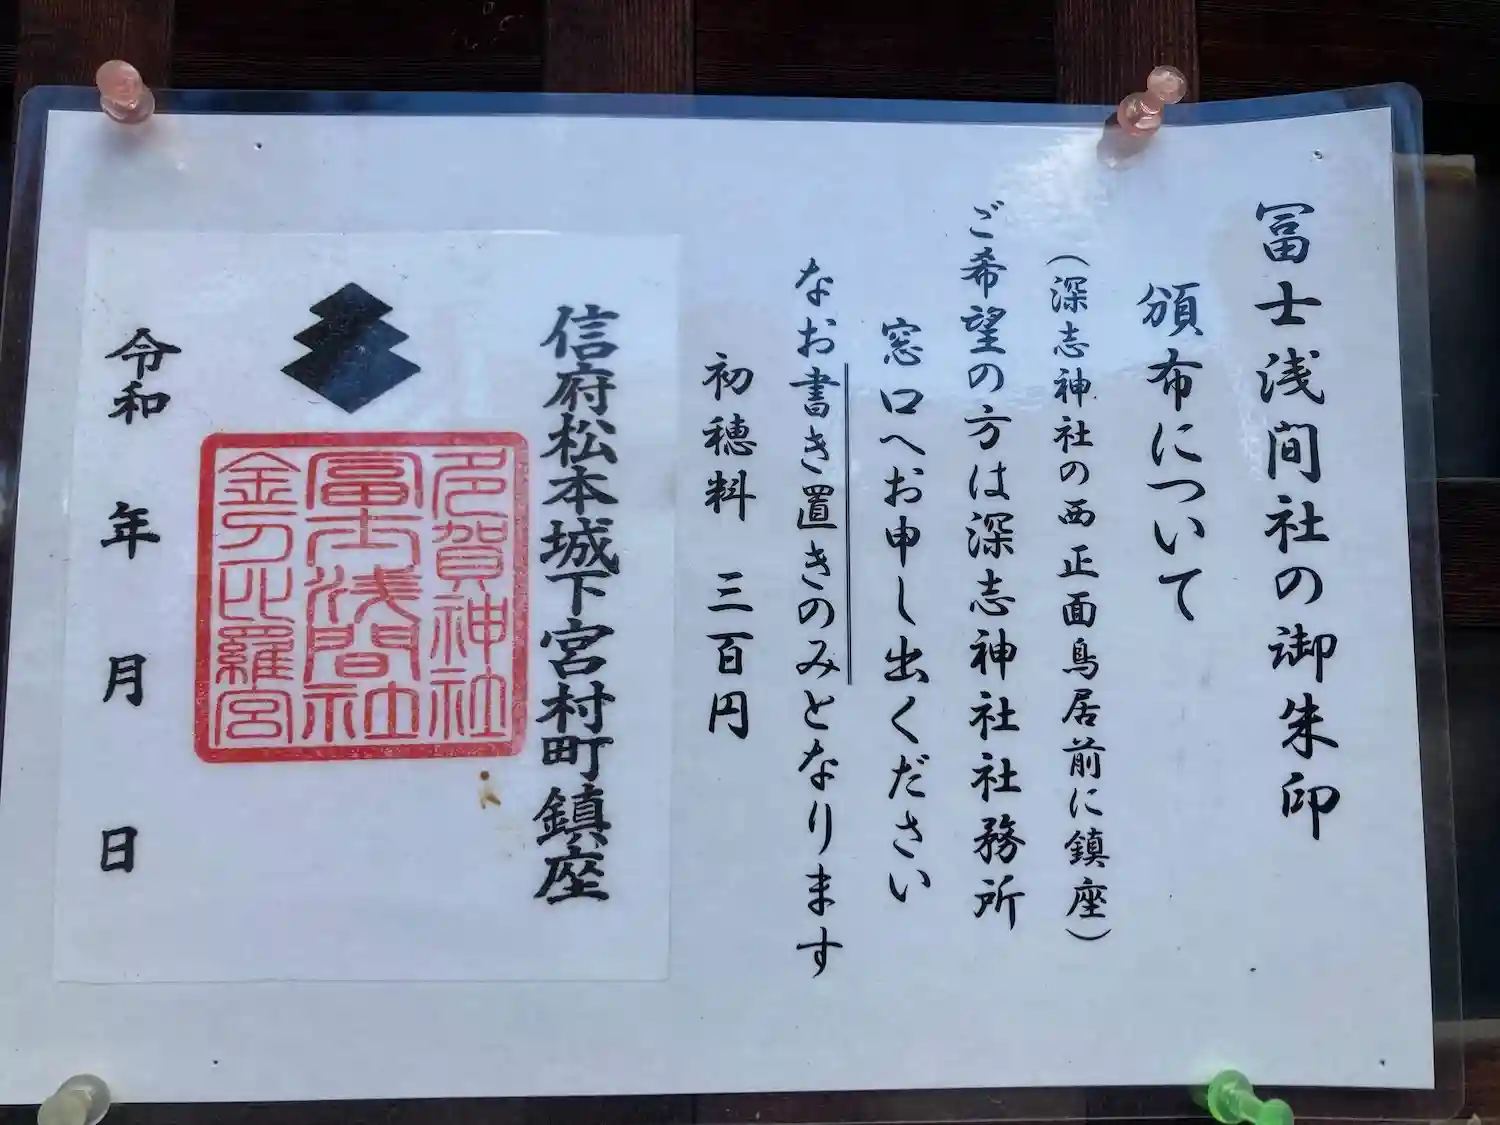 冨士浅間社の御朱印
頒布について
（深志神社の西正面鳥居前に鎮座）
ご希望の方は深志神社社務所
窓口へお申し出ください
なお書き置きのみとなります
初穂料 三百円
信府松本城下宮村町鎮座
多賀神社
冨士浅間社
金刀比羅宮
令和 年 月 日